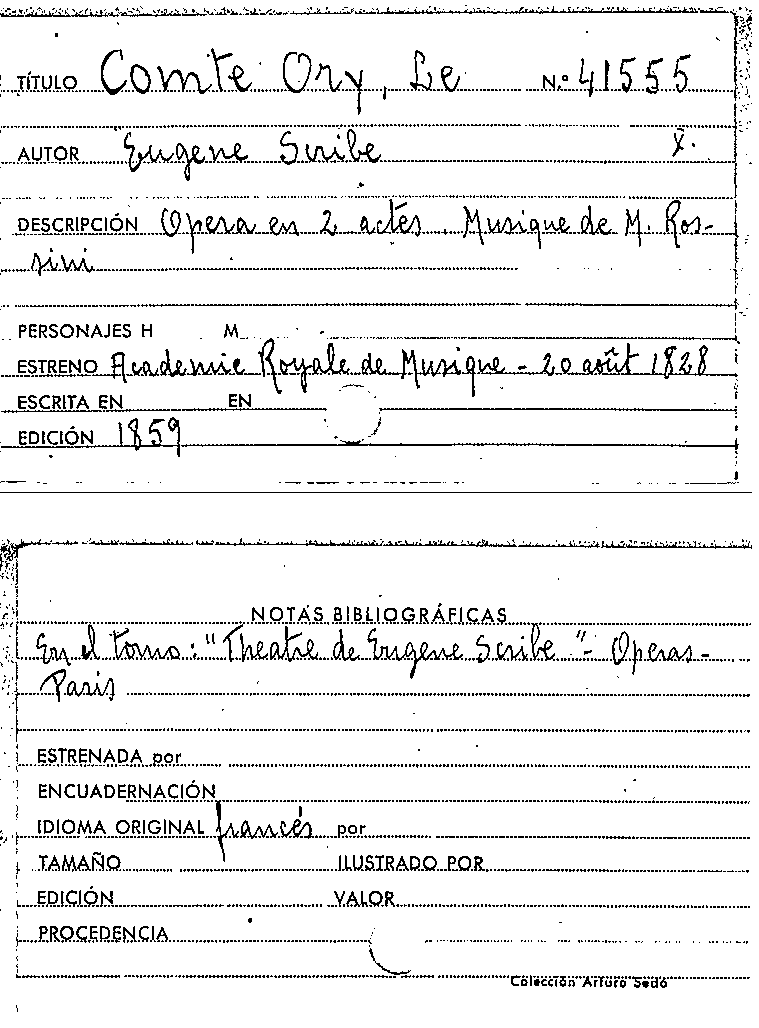 TÍTULO Comte Ory, Le N.º 41555
AUTOR Eugene Scribe X.
DESCRIPCIÓN Opera en 2 actes. Musique de M. Ros-
sini
PERSONAJES H M.
ESTRENO Academie Royale de Musique - 20 août 1828
ESCRITA EN EN
EDICIÓN 1859
NOTAS BIBLIOGRÁFICAS
En el tomo: "Theatre de Eugene Scribe" - Operas -
Paris
ESTRENADA por
ENCUADERNACIÓN
IDIOMA ORIGINAL francés por
TAMAÑO ILUSTRADO POR
EDICIÓN VALOR
PROCEDENCIA
Colección Arturo Sedó